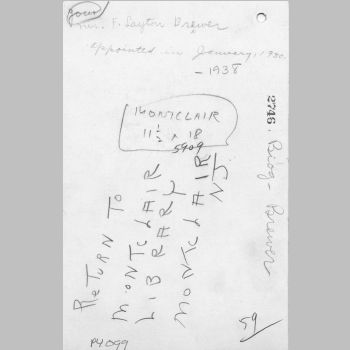 your
Rev. F. Layton Brewer
appointed in January, 1930.
- 1938
MONTCLAIR
11 1/2 x 18
5909
2746. Biog - Brewer
RETURN TO
MONTCLAIR
LIBRARY
MONTCLAIR
NJ
59/
P4099